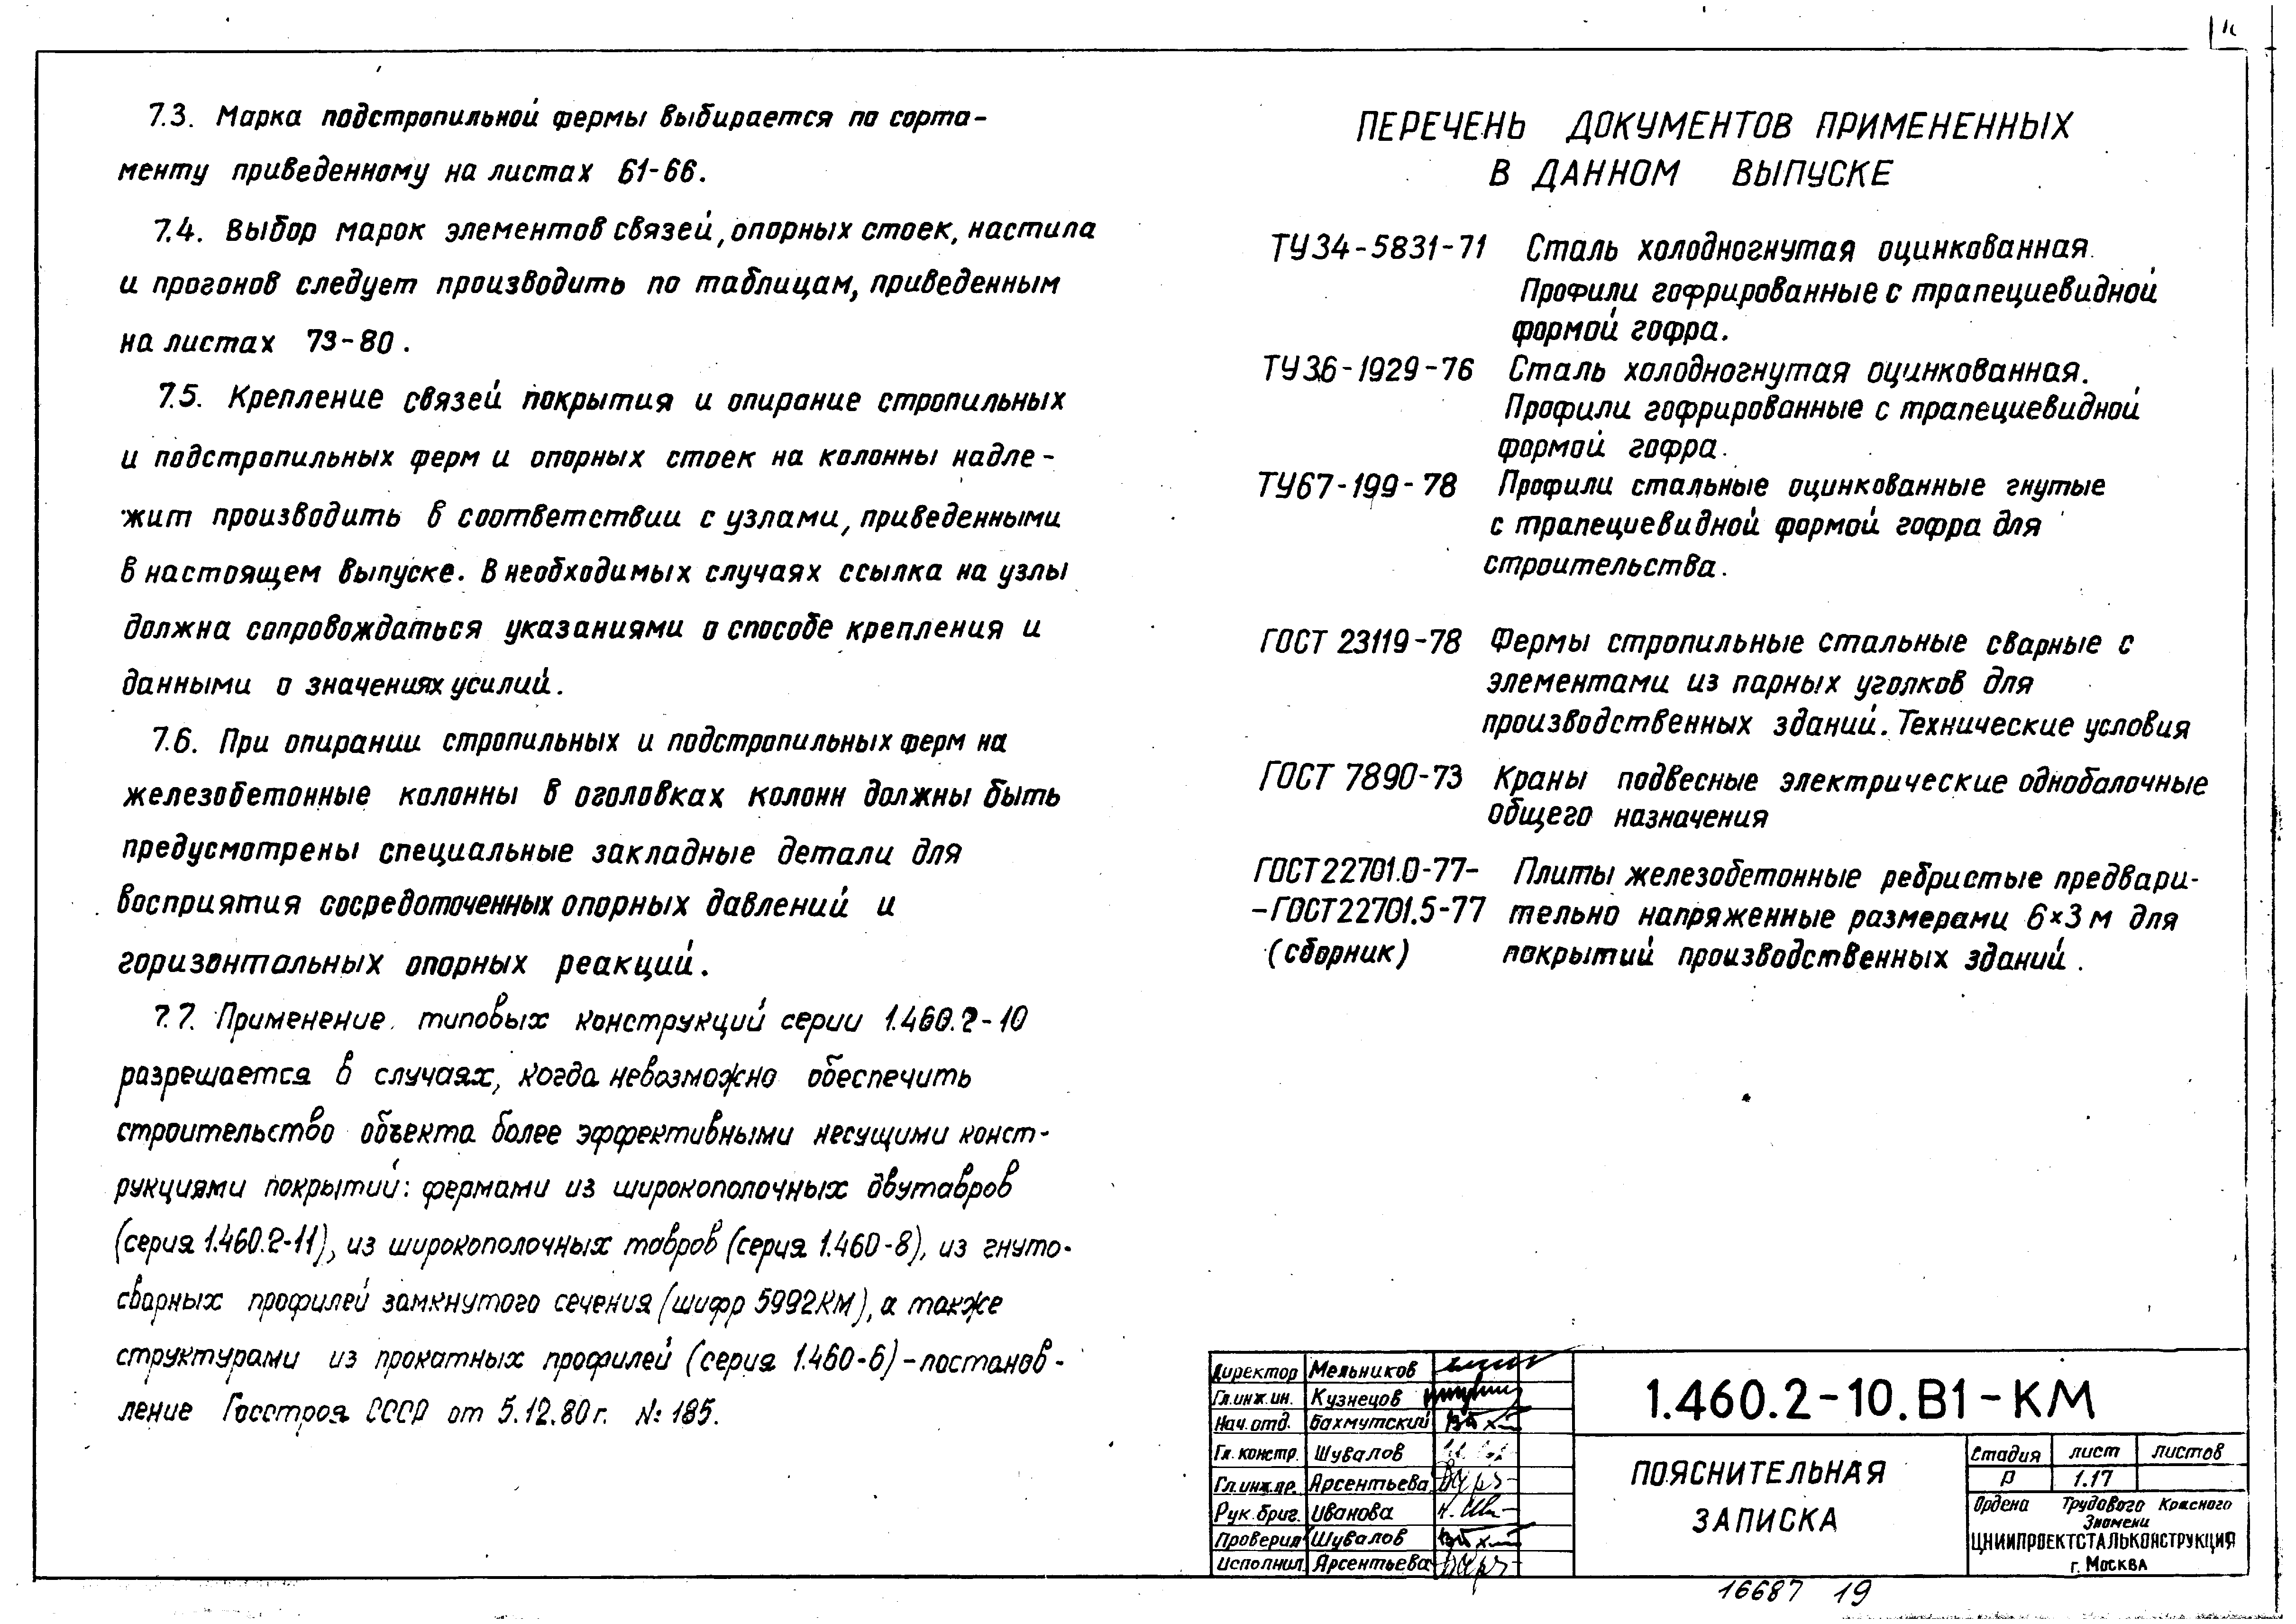 7.3. Марка подстропильной фермы выбирается по сорта-
менту приведенному на листах 61-66.
7.4. Выбор марок элементов связей, опорных стоек, настила
и прогонов следует производить по таблицам, приведенным
на листах 73-80.
7.5. Крепление связей покрытия и опирание стропильных
и подстропильных ферм и опорных стоек на колонны надле-
жит производить в соответствии с узлами, приведенными
в настоящем выпуске. В необходимых случаях ссылка на узлы
должна сопровождаться указаниями о способе крепления и
данными о значениях усилий.
7.6. При опирании стропильных и подстропильных ферм на
железобетонные колонны в оголовках колонн должны быть
предусмотрены специальные закладные детали для
восприятия сосредоточенных опорных давлений и
горизонтальных опорных реакций.
7.7. Применение типовых конструкций серии 1.460.2-10
разрешается в случаях, когда невозможно обеспечить
строительство объекта более эффективными несущими конст-
рукциями покрытий: фермами из широкополочных двутавров
(серия 1.460.2-11), из широкополочных тавров (серия 1.460-8), из гнуто-
сварных профилей замкнутого сечения (шифр 5992КМ), а также
структурами из прокатных профилей (серия 1.460-6) - постанов-
ление Госстроя СССР от 5.12.80г. № 185.
ПЕРЕЧЕНЬ ДОКУМЕНТОВ ПРИМЕНЕННЫХ
В ДАННОМ ВЫПУСКЕ
ТУ34-5831-71 Сталь холодногнутая оцинкованная.
Профили гофрированные с трапециевидной
формой гофра.
ТУ36-1929-76 Сталь холодногнутая оцинкованная.
Профили гофрированные с трапециевидной
формой гофра.
ТУ67-199-78 Профили стальные оцинкованные гнутые
с трапециевидной формой гофра для
строительства.
ГОСТ 23119-78 Фермы стропильные стальные сварные с
элементами из парных уголков для
производственных зданий. Технические условия
ГОСТ 7890-73 Краны подвесные электрические однобалочные
общего назначения
ГОСТ22701.0-77- Плиты железобетонные ребристые предвари-
-ГОСТ22701.5-77 тельно напряженные размерами 6×3м для
(сборник) покрытий производственных зданий.
Директор Мельников
Гл.инж.ин. Кузнецов
Нач.отд. Бахмутский
Гл.констр. Шувалов
Гл.инж.пр. Арсентьева
Рук.бриг. Иванова
Проверил Шувалов
Исполнил Арсентьева
1.460.2-10.В1-КМ
ПОЯСНИТЕЛЬНАЯ
ЗАПИСКА
Стадия лист листов
Р 1.17
Ордена Трудового Красного
Знамени
ЦНИИПРОЕКТСТАЛЬКОНСТРУКЦИЯ
г. Москва
16687 19